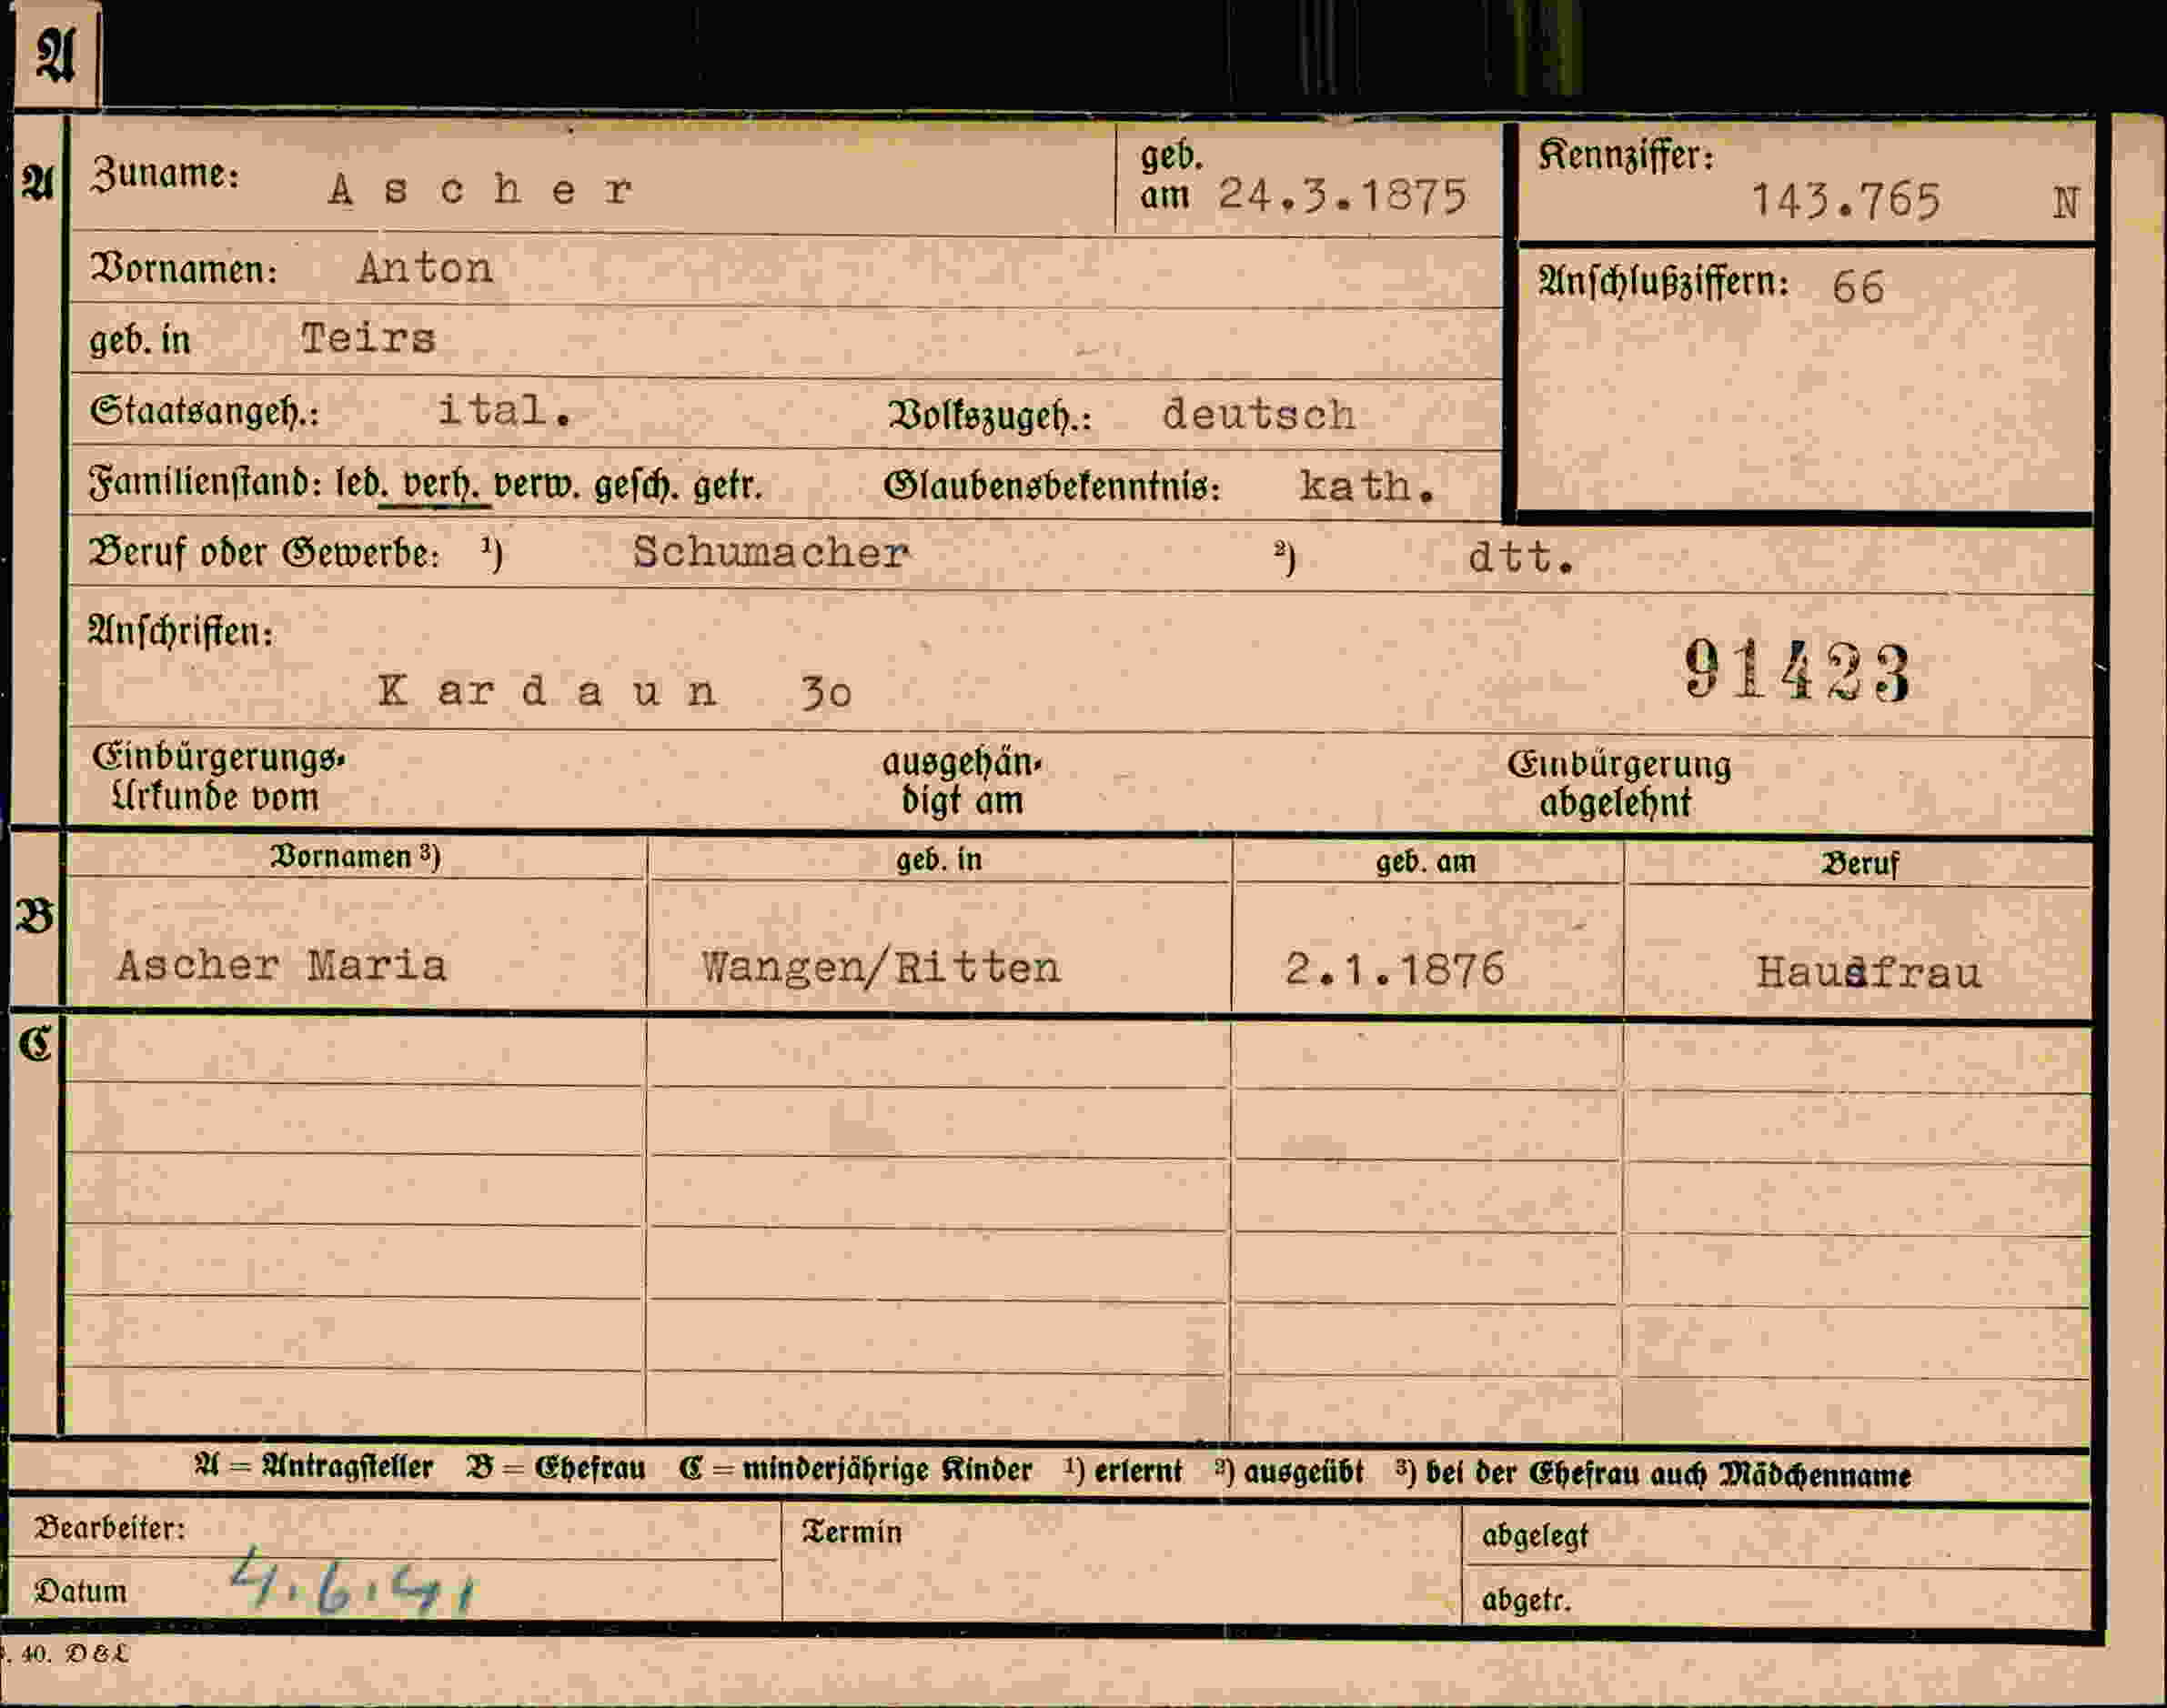 A
A
Zuname: Ascher geb. am 24.3.1875 Kennziffer: 143.765 N
Vornamen: Anton Anschlußziffern: 66
geb. in Teirs
Staatsangeh.: ital. Volkszugeh.: deutsch
Familienstand: led. verh. verw. gesch. getr. Glaubensbekenntnis: kath.
Beruf oder Gewerbe: ¹) Schumacher ²) dtt.
Anschriften:
Kardaun 30 91423
Einbürgerungs- ausgehän- Einbürgerung
Urkunde vom digt am abgelehnt
Vornamen ³) geb. in geb. am Beruf
B
Ascher Maria Wangen/Ritten 2.1.1876 Hausfrau
C
A = Antragsteller B = Ehefrau C = minderjährige Kinder ¹) erlernt ²) ausgeübt ³) bei der Ehefrau auch Mädchenname
Bearbeiter: Termin abgelegt
Datum 4.6.41 abgetr.
. 40. D & L